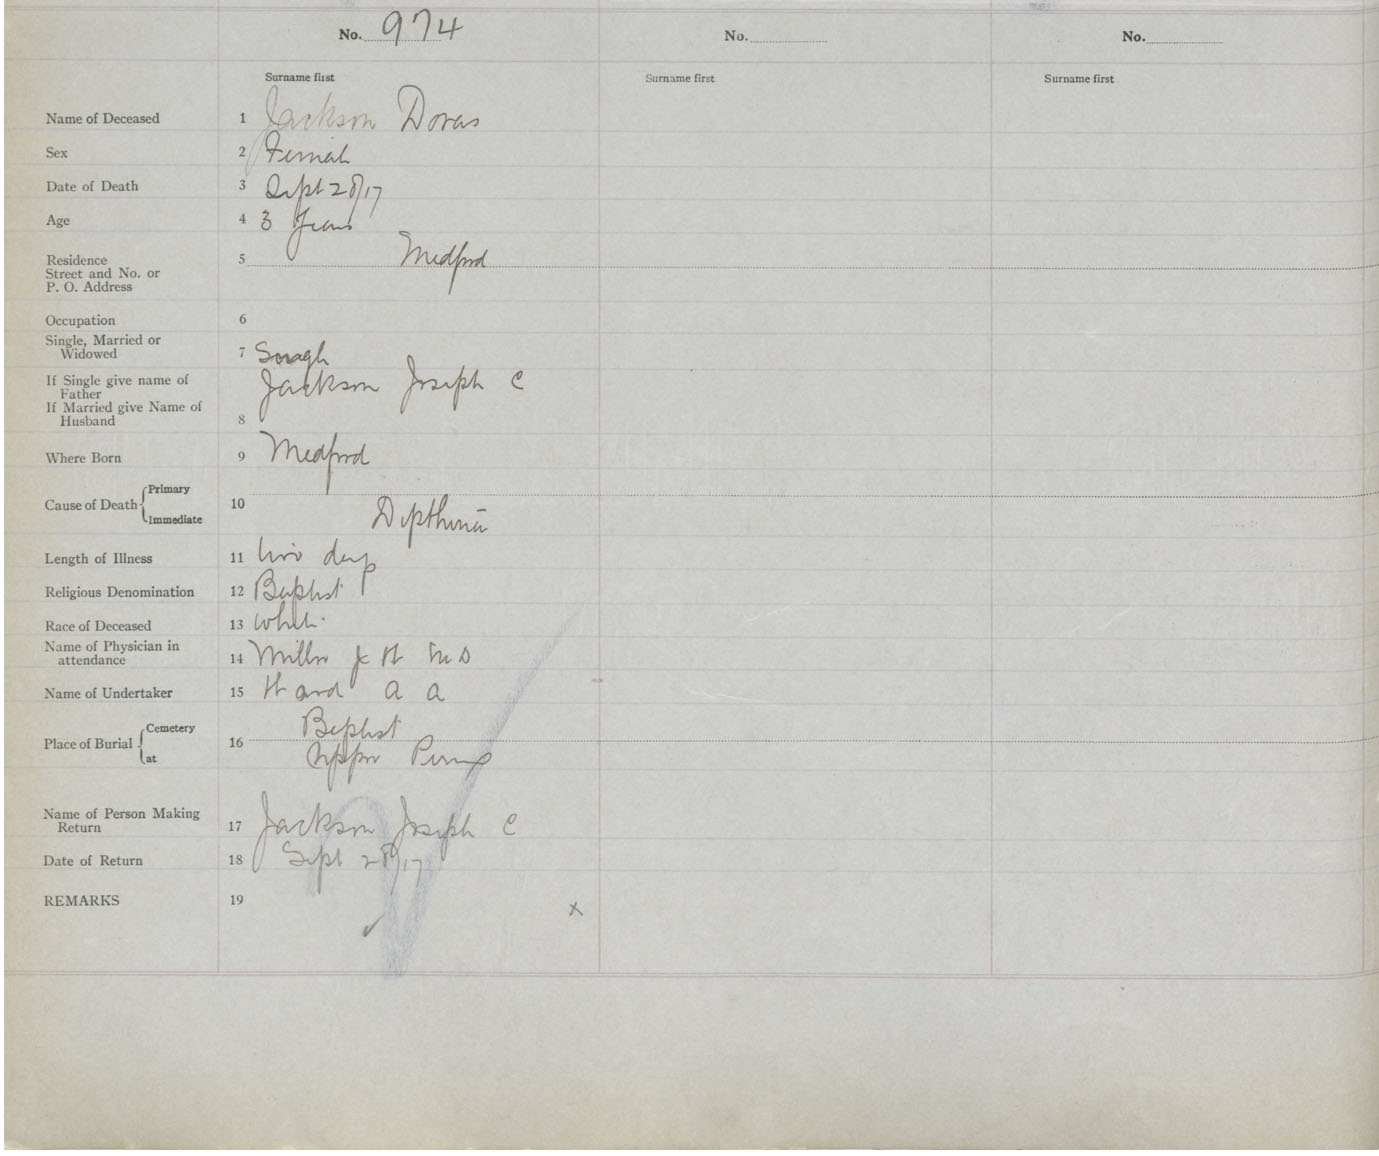 No. 974 No. No.
Surname first Surname first Surname first
Name of Deceased 1 Jackson Doras
Sex 2 Female
Date of Death 3 Sept 28/17
Age 4 3 Years
Residence 5 Medford
Street and No. or
P. O. Address
Occupation 6
Single, Married or
Widowed 7 Single
If Single give name of Jackson Joseph C
Father
If Married give Name of
Husband 8
Where Born 9 Medford
Primary
Cause of Death 10
Immediate Dipthiria
Length of Illness 11 two days
Religious Denomination 12 Baptist
Race of Deceased 13 white
Name of Physician in
attendance 14 Miller J H M D
Name of Undertaker 15 A A
Cemetery Baptist
Place of Burial 16
at Upper
Name of Person Making
Return 17 Jackson Joseph C
Date of Return 18 Sept 28/17
REMARKS 19 x